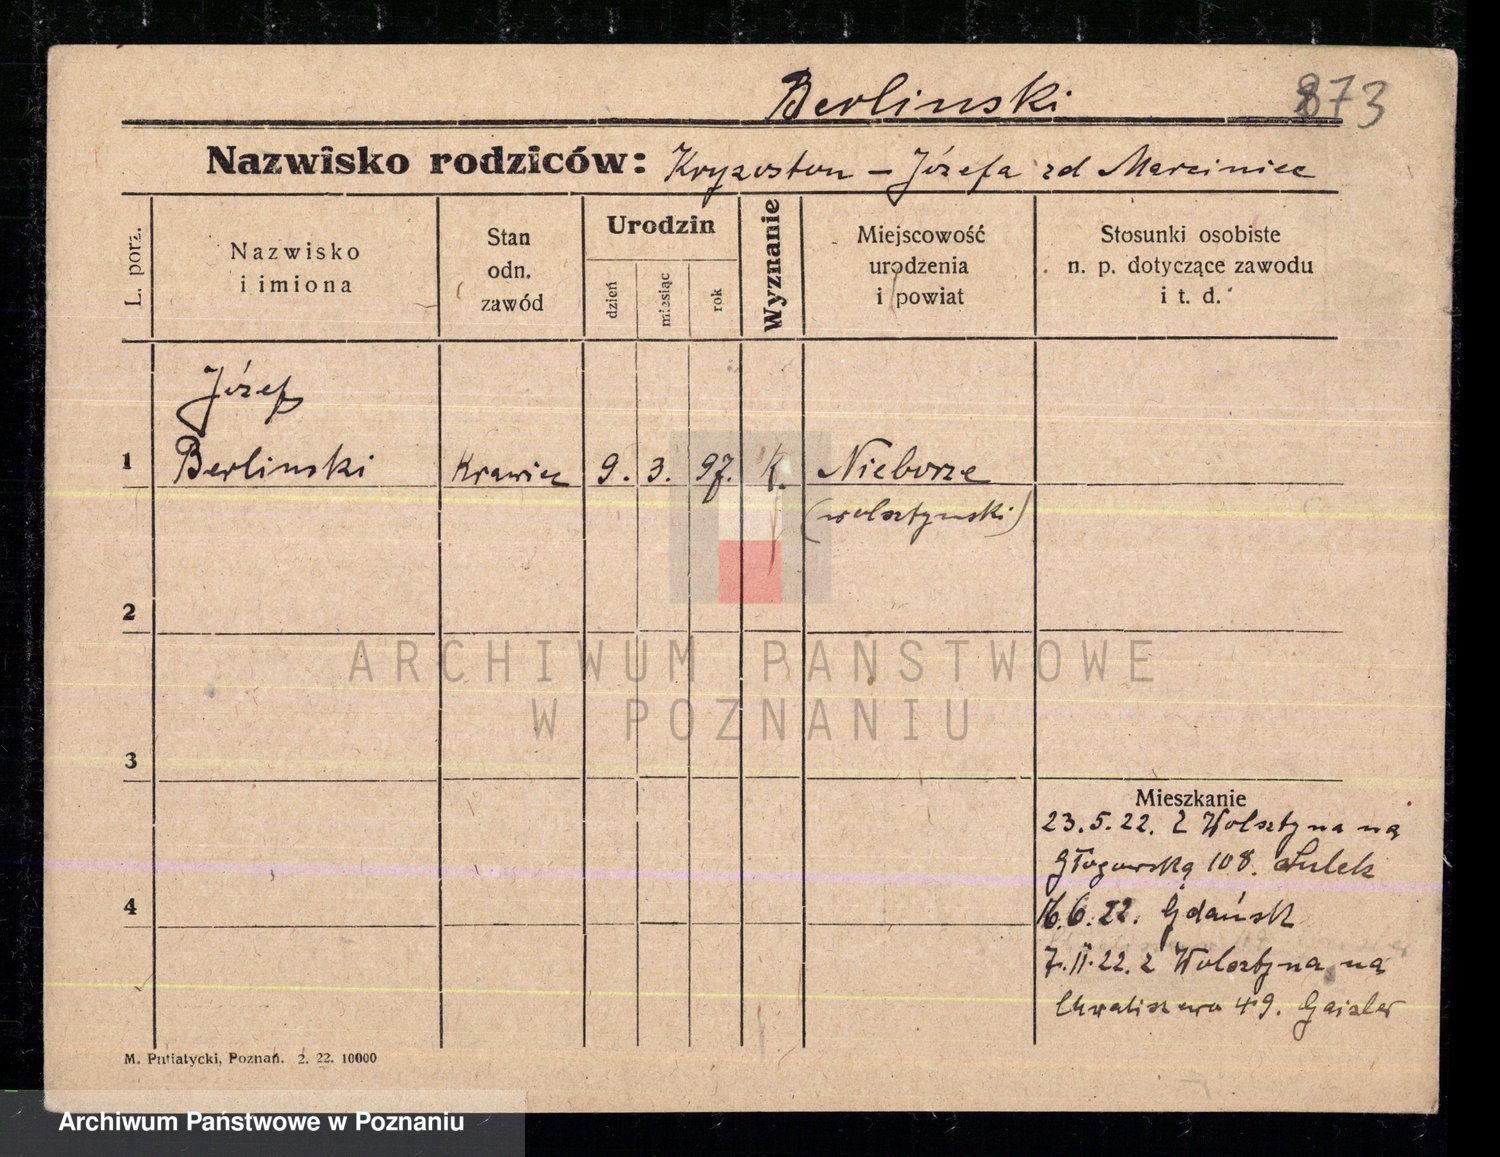 Berlinski
873
Nazwisko rodziców: Kryzostom – Józefa zd Marciniec
L. porz.
Nazwisko
i imiona
Stan
odn.
zawód
Urodzin
dzień
miesiąc
rok
Wyznanie
Miejscowość
urodzenia
i powiat
Stosunki osobiste
n. p. dotyczące zawodu
i t. d.
Józef
1 Berlinski Krawiec 9. 3. 97. K. Nieborze
(wolsztynski)
2
ARCHIWUM PAŃSTWOWE
W POZNANIU
3
Mieszkanie
23.5.22. z Wolsztyna na
Głogowską 108. Lulek
4
16.6.22. Gdańsk
7.II.22. z Wolsztyna na
Chwaliszewo 49. Gaizler
M. Putiatycki, Poznań. 2. 22. 10000
Archiwum Państwowe w Poznaniu